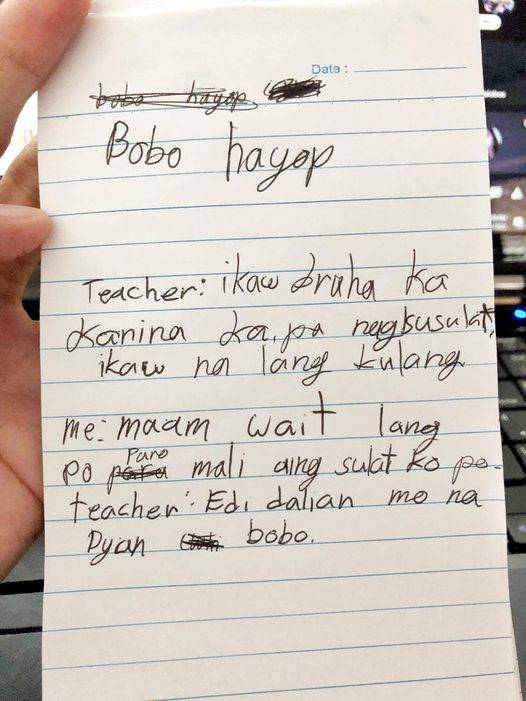 Date :
bobo hayop
Bobo hayop
Teacher: ikaw bruha ka
kanina ka pa nagsusulat,
ikaw na lang kulang
me: maam wait lang
po Pano mali aing sulat ko po.
teacher: Edi dalian mo na
Dyan bobo.